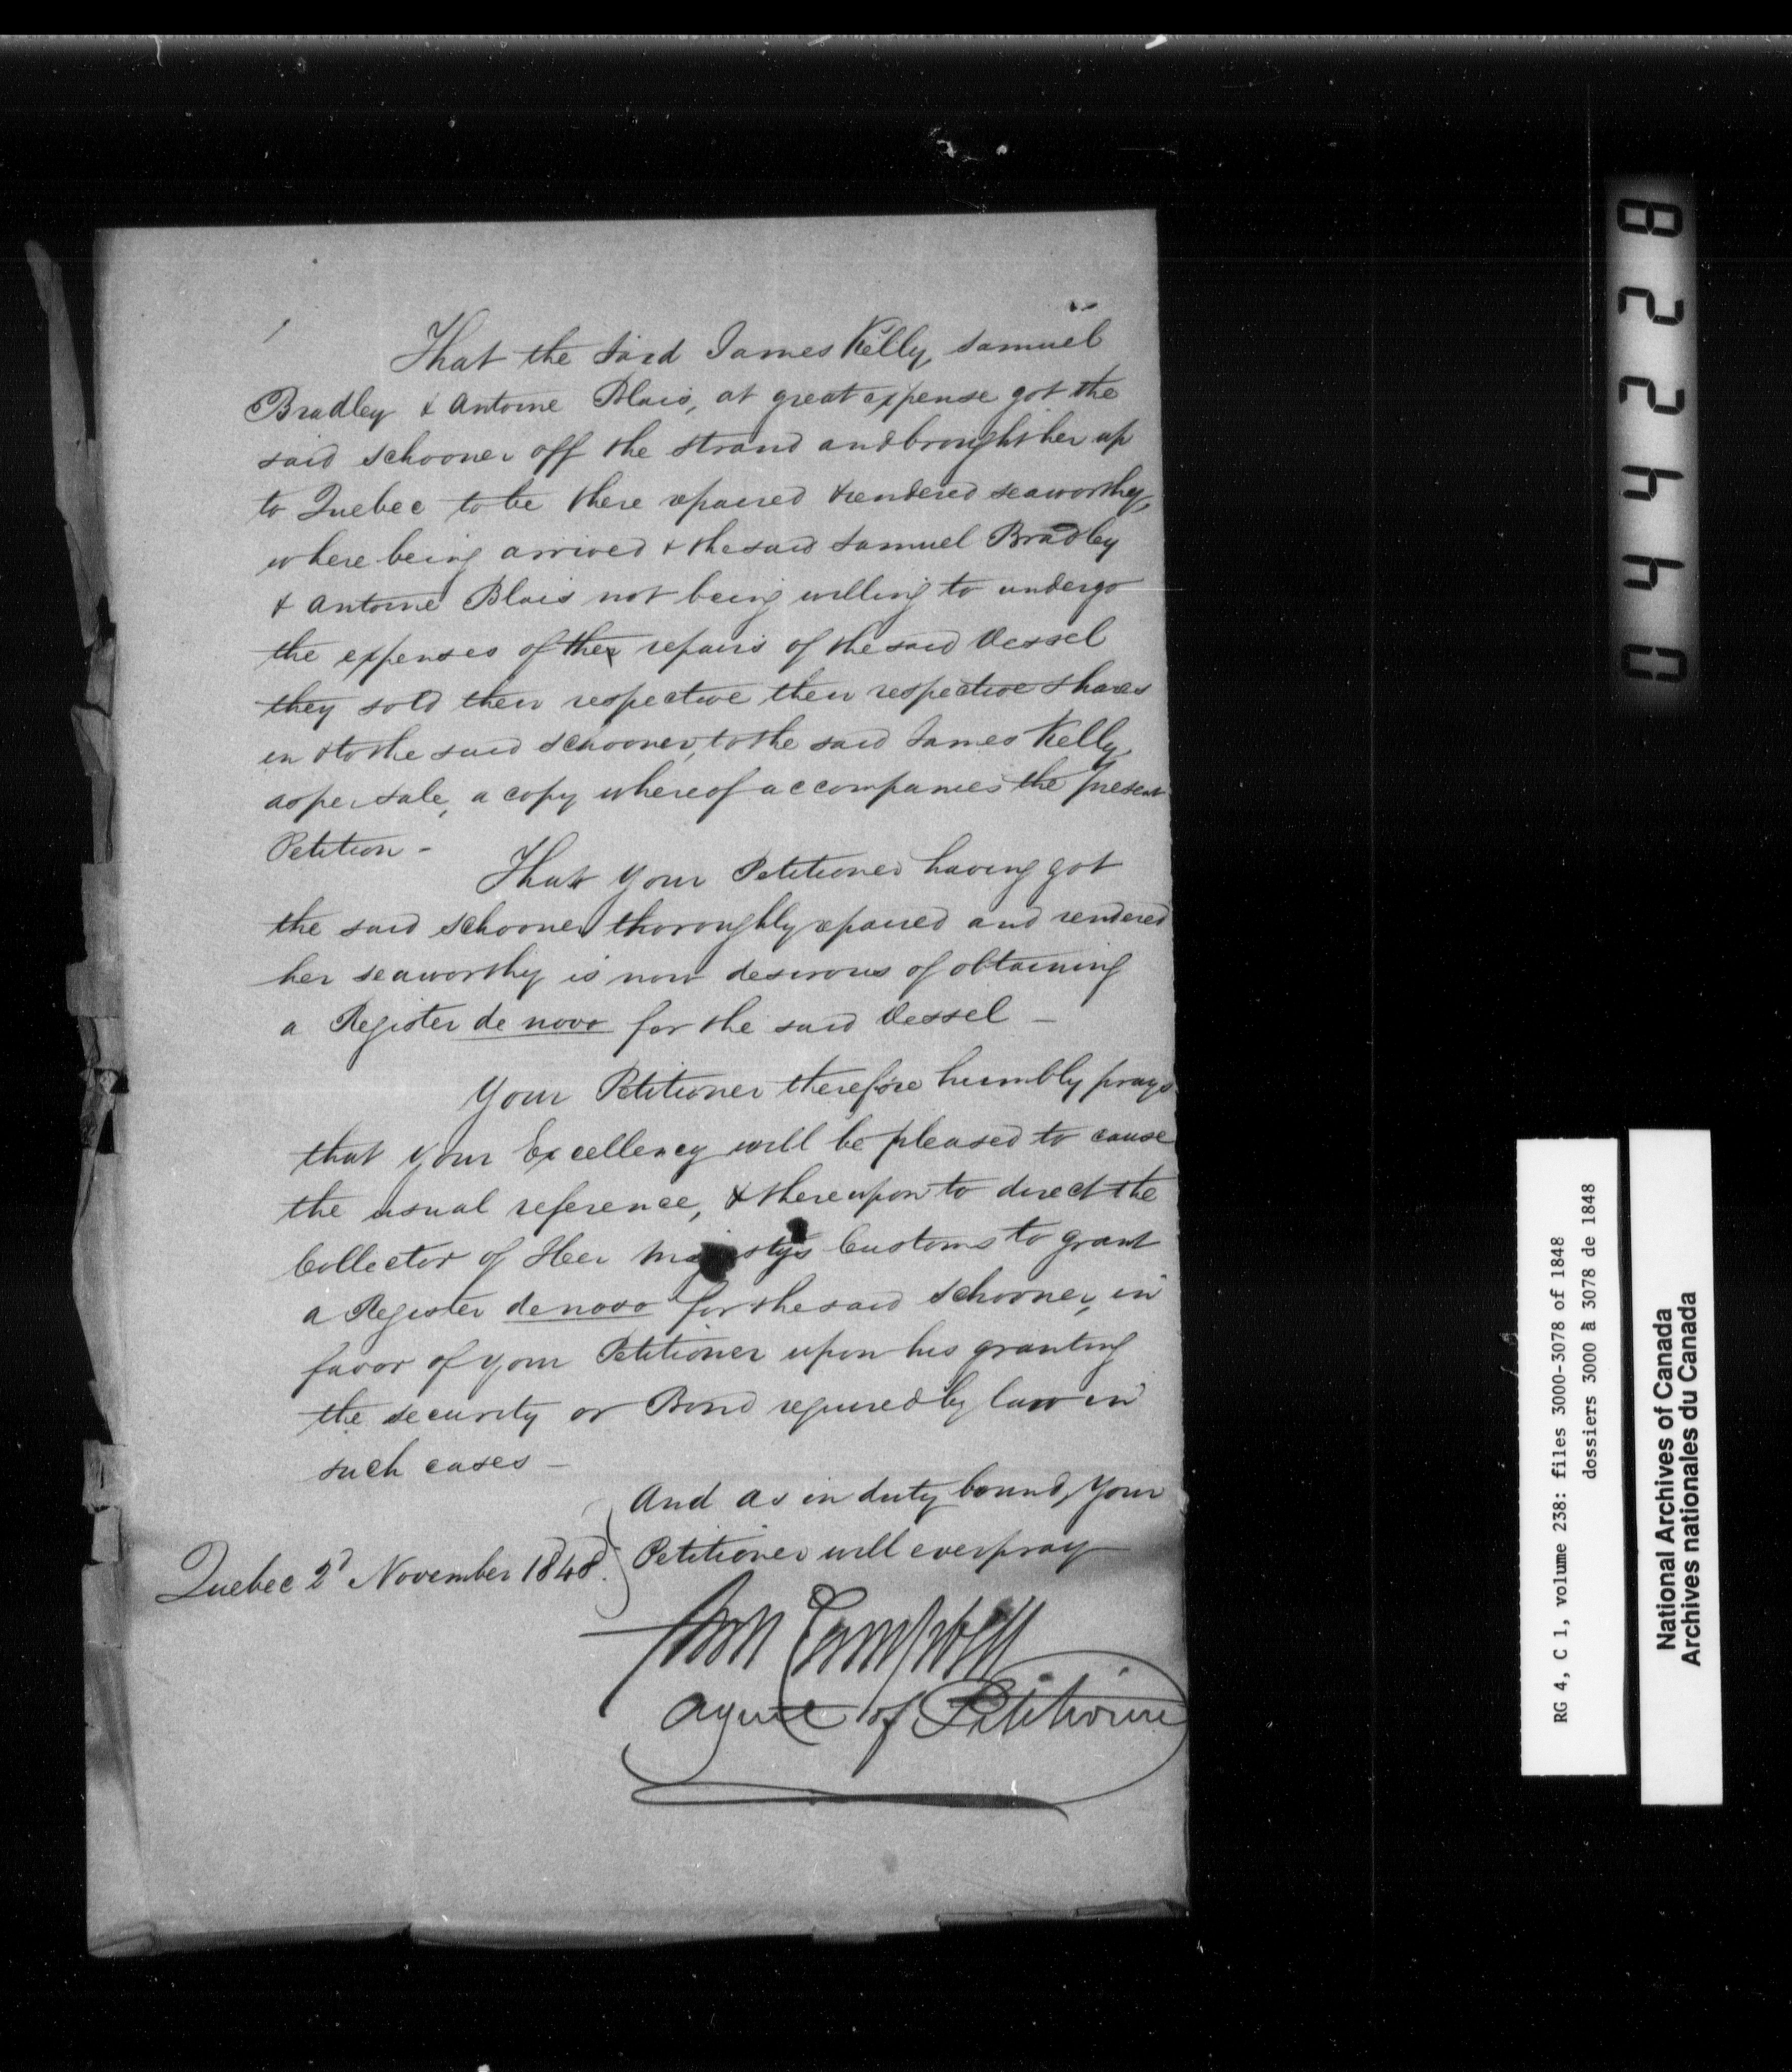 That the said James Kelly, Samuel
Bradley & Antoine Blais, at great expense got the
said schooner off the strand and brought her up
to Quebec to be there repaired & rendered seaworthy,
where being arrived & the said Samuel Bradley
& Antoine Blais not being willing to undergo
the expenses of the repairs of the said Vessel
they sold their respective their respective shares
in & to the said schooner, to the said James Kelly,
as per sale, a copy whereof accompanies the present
Petition -
That your Petitioner having got
the said schooner thoroughly repaired and rendered
her seaworthy is now desirous of obtaining
a Register de novo for the said Vessel -
Your Petitioner therefore humbly prays
that your Excellency will be pleased to cause
the usual reference, & thereupon to direct the
Collector of Her Majesty's Customs to grant
a Register de novo for the said schooner, in
favor of your Petitioner upon his granting
the security or Bond required by law in
such cases -
And as in duty bound, Your
Petitioner will ever pray
Quebec 2d November 1848.
Campbell
agent of Petitioner
8 2 2 4 4 0
RG 4, C 1, volume 238: files 3000-3078 of 1848
dossiers 3000 à 3078 de 1848
National Archives of Canada
Archives nationales du Canada